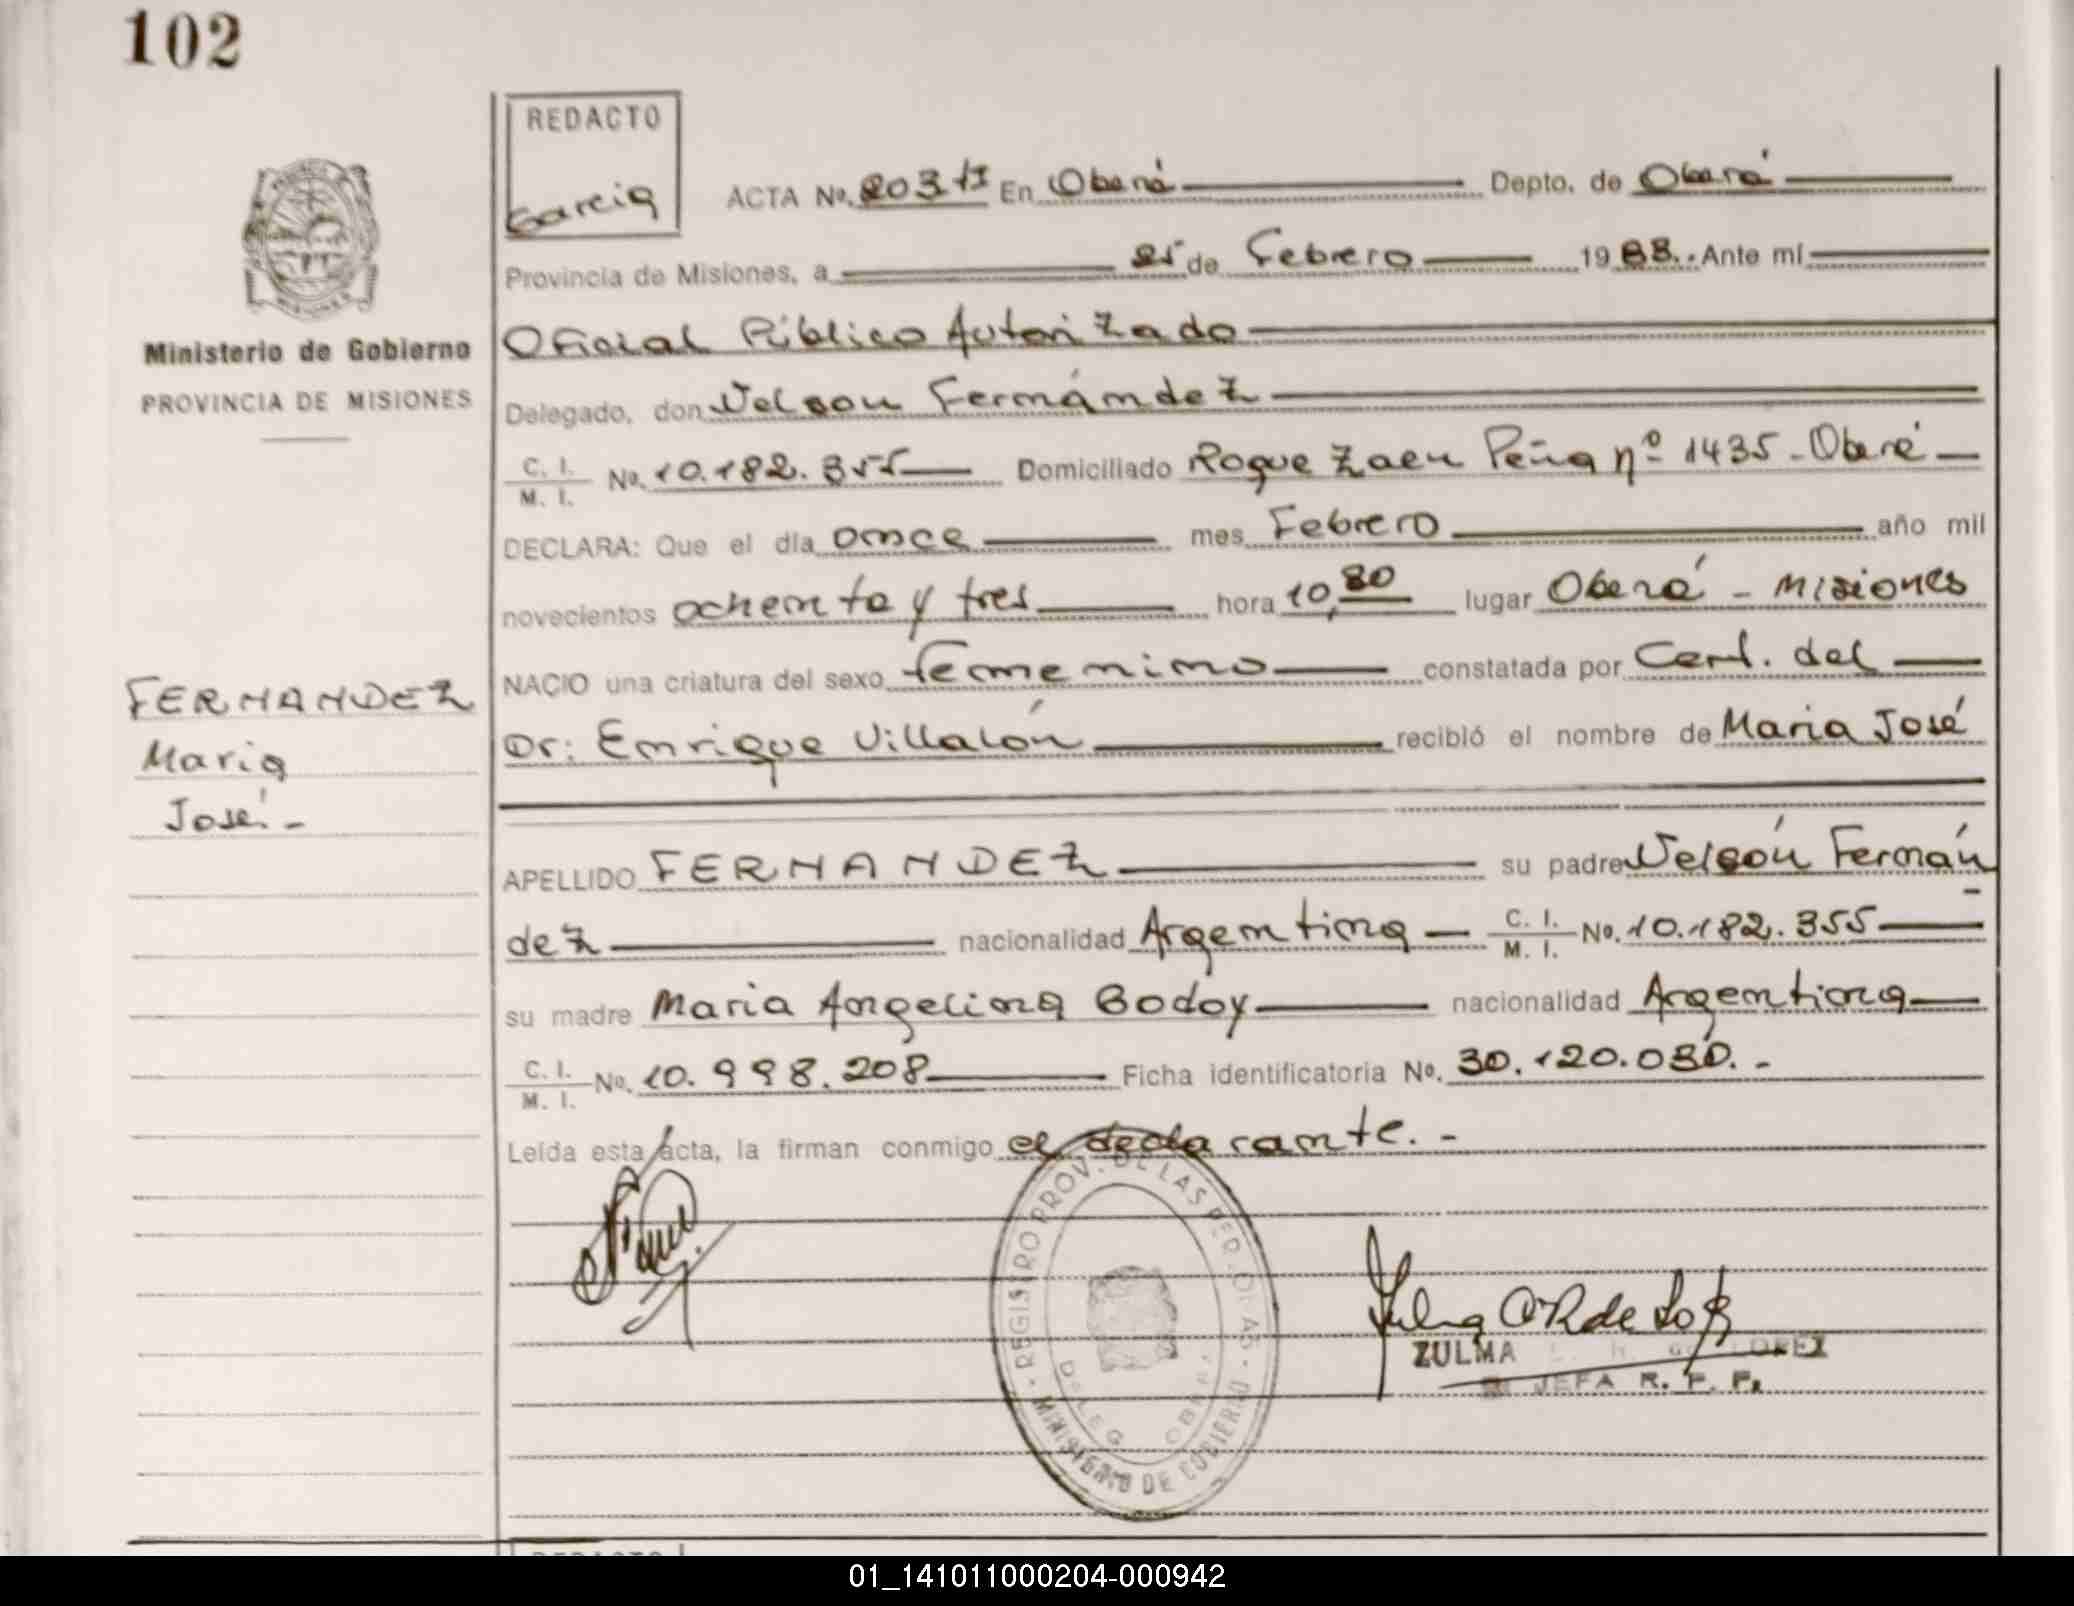 102
REDACTO
Garcia
ACTA No. 203 tI En Oberá Depto. de Oberá
Provincia de Misiones, a 25 de Febrero 1983. Ante mí
Oficial Público Autorizado
Ministerio de Gobierno
PROVINCIA DE MISIONES
Delegado, don Nelson Fernández
C. I. / M. I. No. 10.182.355 Domiciliado Roque Zaen Peña nº 1435 - Oberá
DECLARA: Que el día once mes Febrero año mil
novecientos ochenta y tres hora 10,30 lugar Oberá - Misiones
NACIO una criatura del sexo femenino constatada por Cert. del
Dr: Enrique Villalón recibió el nombre de Maria José
FERNANDEZ
Maria
José.-
APELLIDO FERNANDEZ su padre Nelsón Fernán-
dez nacionalidad Argentina C. I. / M. I. No. 10.182.355
su madre Maria Angelina Godoy nacionalidad Argentina
C. I. / M. I. No. 10.998.208 Ficha identificatoria No. 30.120.030.-
Leída esta acta, la firman conmigo el declarante.-
REGISTRO PROV. DE LAS PERSONAS
MINISTERIO DE GOBIERNO
DELEG. OBERA
ZULMA
JEFA R. P. P.
REDACTO
01_141011000204-000942